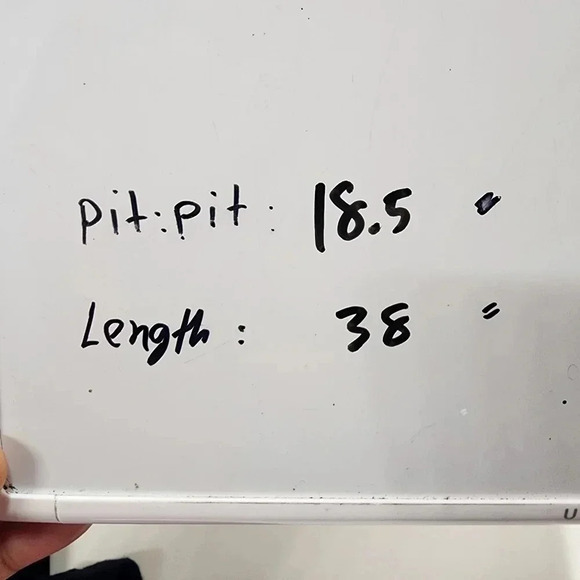 pit:pit: 18.5 "
Length: 38 "